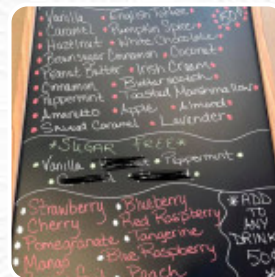 Vanilla • English Toffee •
Caramel • Pumpkin Spice • 50¢
Hazelnut • White Chocolate •
Brownsugar Cinnamon • Coconut •
Peanut Butter • Irish Cream •
Cinnamon • Butterscotch •
Peppermint • Toasted Marshmallow •
Amaretto • Apple • Almond •
Salted Caramel • Lavender •
*SUGAR FREE*
• Vanilla • • Peppermint •
• Strawberry • Blueberry
• Cherry • Red Raspberry
• Pomegranate • Tangerine
• Mango • Blue Raspberry
• Peach
*ADD
TO
ANY
DRINK
50¢